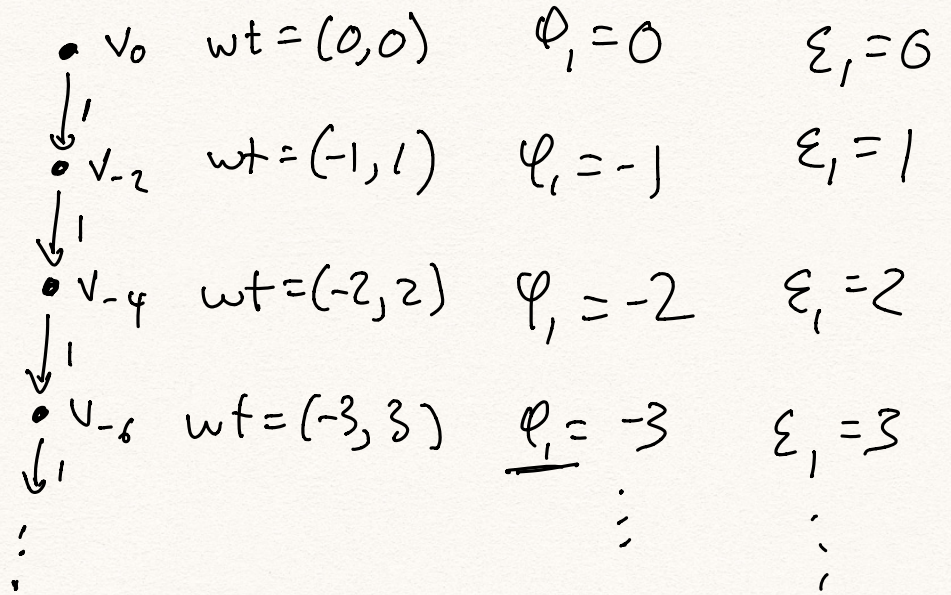 • v₀ wt = (0,0) φ₁ = 0 ε₁ = 0
↓ 1
• v₋₂ wt = (-1, 1) φ₁ = -1 ε₁ = 1
↓ 1
• v₋₄ wt = (-2, 2) φ₁ = -2 ε₁ = 2
↓ 1
• v₋₆ wt = (-3, 3) φ₁ = -3 ε₁ = 3
↓ 1
⋮ ⋮ ⋮